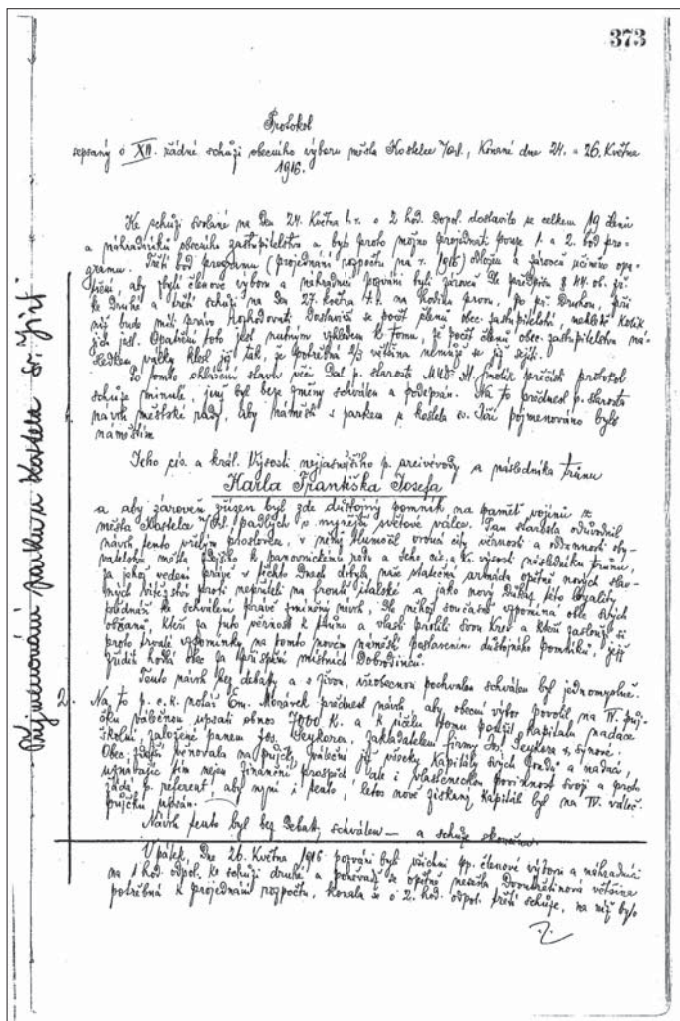 373
Protokol
sepsaný o XII. řádné schůzi obecního výboru města Kostelce /Orl., konané dne 24. a 26. Května
1916.
Ke schůzi svolané na den 24. Května t. r. o 2 hod. odpol. dostavilo se celkem 19 členů
a náhradníků obecního zastupitelstva a bylo proto možno projednati pouze 1. a 2. bod pro-
gramu. Třetí bod programu (projednání rozpočtu na r. 1916) odložen a zároveň učiněno opa-
tření, aby členové výboru a náhradníci pozváni byli zároveň dle předpisu § ob. zř.
ke druhé a třetí schůzi na den 27. května t. r. na hodinu prvou, po př. druhou, při
níž budo míti právo rozhodovati dostavivší se počet členů obec. zastupitelstva nechť kolik
jich jest. Opatření toto jest nutným vzhledem k tomu, že počet členů obec. zastupitelstva ná-
sledkem války klesl již tak, že potřebná 2/3 většina nemůže se již sejíti.
Po tomto ohlášení dal p. starosta přečísti protokol
schůze minulé, jenž byl beze změny schválen a podepsán. Na to přednesl p. starosta
návrh městské rady, aby náměstí s parkem u kostela sv. Jiří pojmenováno bylo
náměstím
Jeho cís. a král. Výsosti nejjasnějšího p. arcivévody a následníka trůnu
Karla Františka Josefa
a aby zároveň zřízen byl zde důstojný pomník na paměť vojínů z
města Kostelce /Orl. padlých v nynější světové válce. Pan starosta odůvodnil
návrh tento vřelým proslovem, v němž tlumočil vroucí city věrnosti a oddanosti oby-
vatelstva města k panovnickému rodu a Jeho cís. a k. výsosti následníku trůnu,
za jehož vedení právě v těchto dnech dobyla naše statečná armáda opětně nových slav-
ných vítězství proti nepříteli na frontě italské a jako nový důkaz této loyality
předkládá ke schválení právě zmíněný návrh, dle něhož současně vzpomíná obec svých
občanů, kteří za tuto věrnost k trůnu a vlasti prolili svou krev a kteří zasluhují si
proto trvalé vzpomínky na tomto novém náměstí postavením důstojného pomníku, jejž
zřídit hodlá obec za přispění místních dobrodinců.
Tento návrh bez debaty a s živou, všeobecnou pochvalou schválen byl jednomyslně.
2. Na to p. c. k. notář Em. Morávek přednesl návrh aby obecní výbor povolil na IV. půj-
čku válečnou upsati obnos 7000 K. a k účelu tomu použil kapitálu nadace
školní založené panem Jos. Seykorou, zakladatelem firmy Ig. Seykora a synové.
Obec zdejší věnovala na půjčky válečné již všecky kapitály svých fondů a nadací,
uznávajíc tím nejen finanční prospěch ale i vlasteneckou povinnost svoji a proto
žádá p. referent, aby nyní i tento, letos nově získaný kapitál byl na IV. váleč.
půjčku upsán.
Návrh tento byl bez debaty schválen — a schůze skončena.
V pátek, dne 26. Května 1916 pozváni byli všichni pp. členové výboru a náhradníci
na 1 hod. odpol. ke schůzi druhé a poněvadž se opětně nesešla dvoutřetinová většina
potřebná k projednání rozpočtu, konala se o 2. hod. odpol. třetí schůze, na níž bylo
Pojmenování parku u kostela sv. Jiří
1.